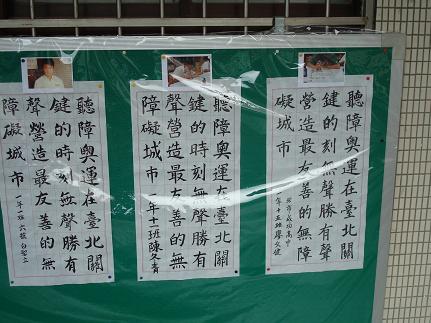 聽障奧運在臺北關
鍵的時刻無聲勝有聲
營造最友善的無障
礙城市
聽障奧運在臺北關
鍵的時刻無聲勝有
聲營造最友善的無
障礙城市
聽障奧運在臺北關
鍵的時刻無聲勝有
聲營造最友善的無
障礙城市 一年一班 六號